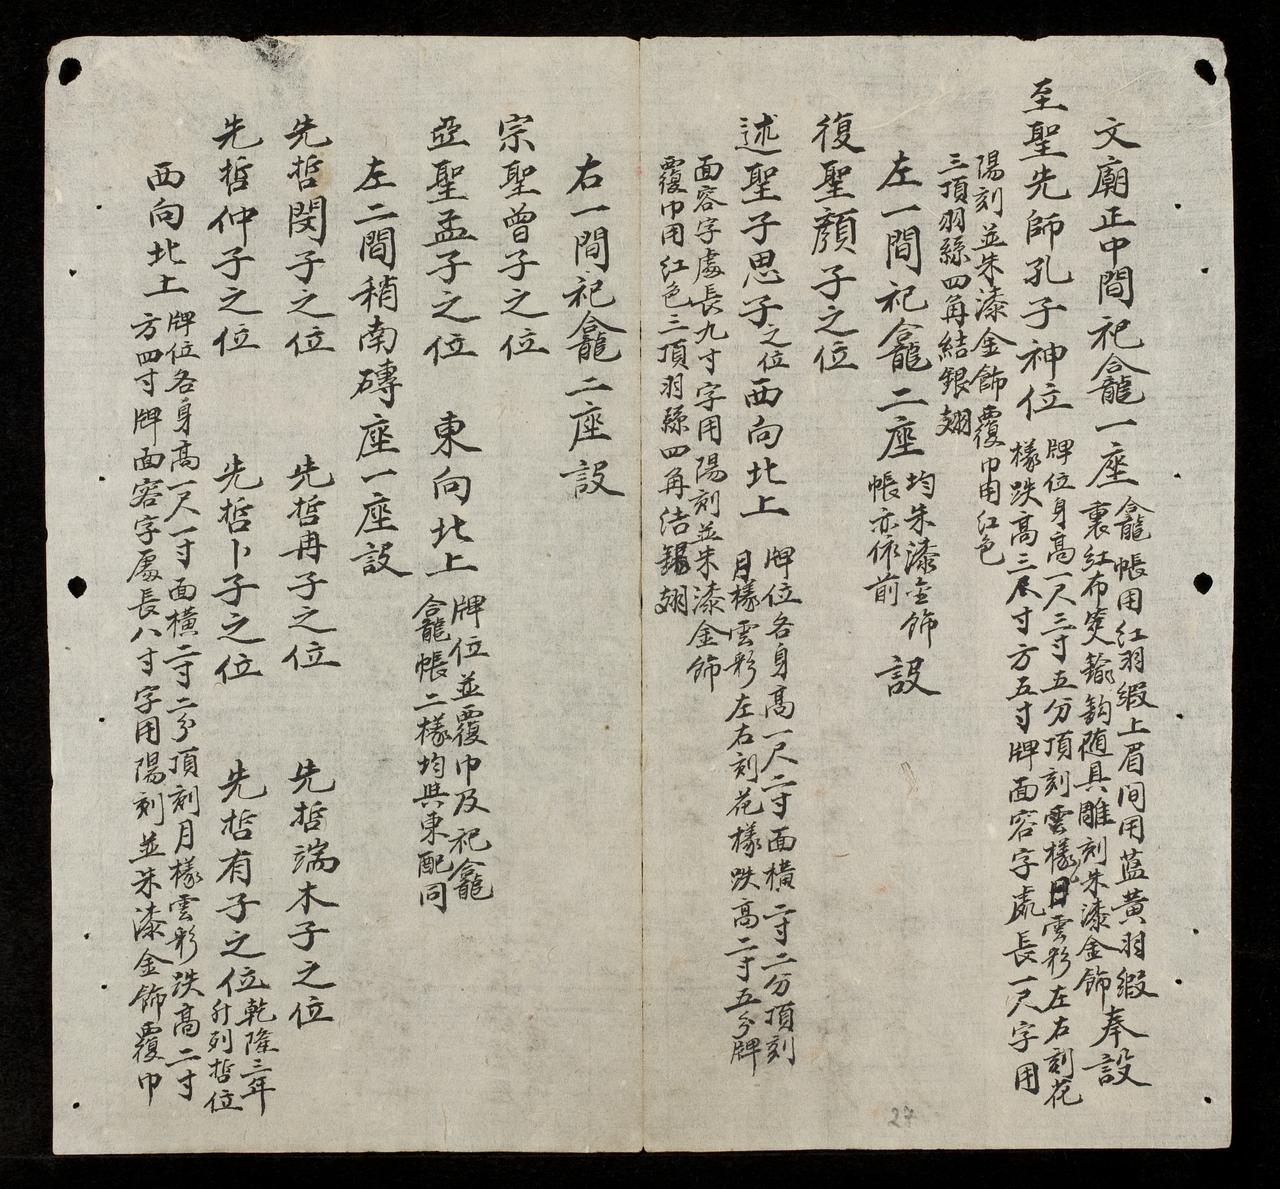 文廟正中間祀龕一座
龕帳用紅羽緞上眉间用蓝黄羽緞
裏紅布
鍮鈎随具雕刻朱漆金飾
奉設
至聖先師孔子神位
牌位身高一尺三寸五分頂刻雲樣日雲彩左右刻花
樣趺高三寸方五寸牌面容字處長一尺字用
陽刻並朱漆金飾覆巾用紅色
三頂羽緜四角結銀翅
左一間祀龕二座
均朱漆金飾
帳亦依前
設
復聖顏子之位
述聖子思子之位西向北上
牌位各身高一尺二寸面横二寸二分頂刻
月樣雲彩左右刻花樣趺高二寸五分牌
面容字處長九寸字用陽刻並朱漆金飾
覆巾用紅色三頂羽緜四角结錫翅
右一間祀龕二座設
宗聖曾子之位
亞聖孟子之位 東向北上
牌位並覆巾及祀龕
龕帳二樣均與東配同
左二間稍南磚座一座設
先哲閔子之位 先哲冉子之位 先哲端木子之位
先哲仲子之位 先哲卜子之位 先哲有子之位
乾隆三年
升列哲位
西向北上
牌位各身高一尺一寸面横二寸二分頂刻月樣雲彩趺高二寸
方四寸牌面容字處長八寸字用陽刻並朱漆金飾覆巾
27